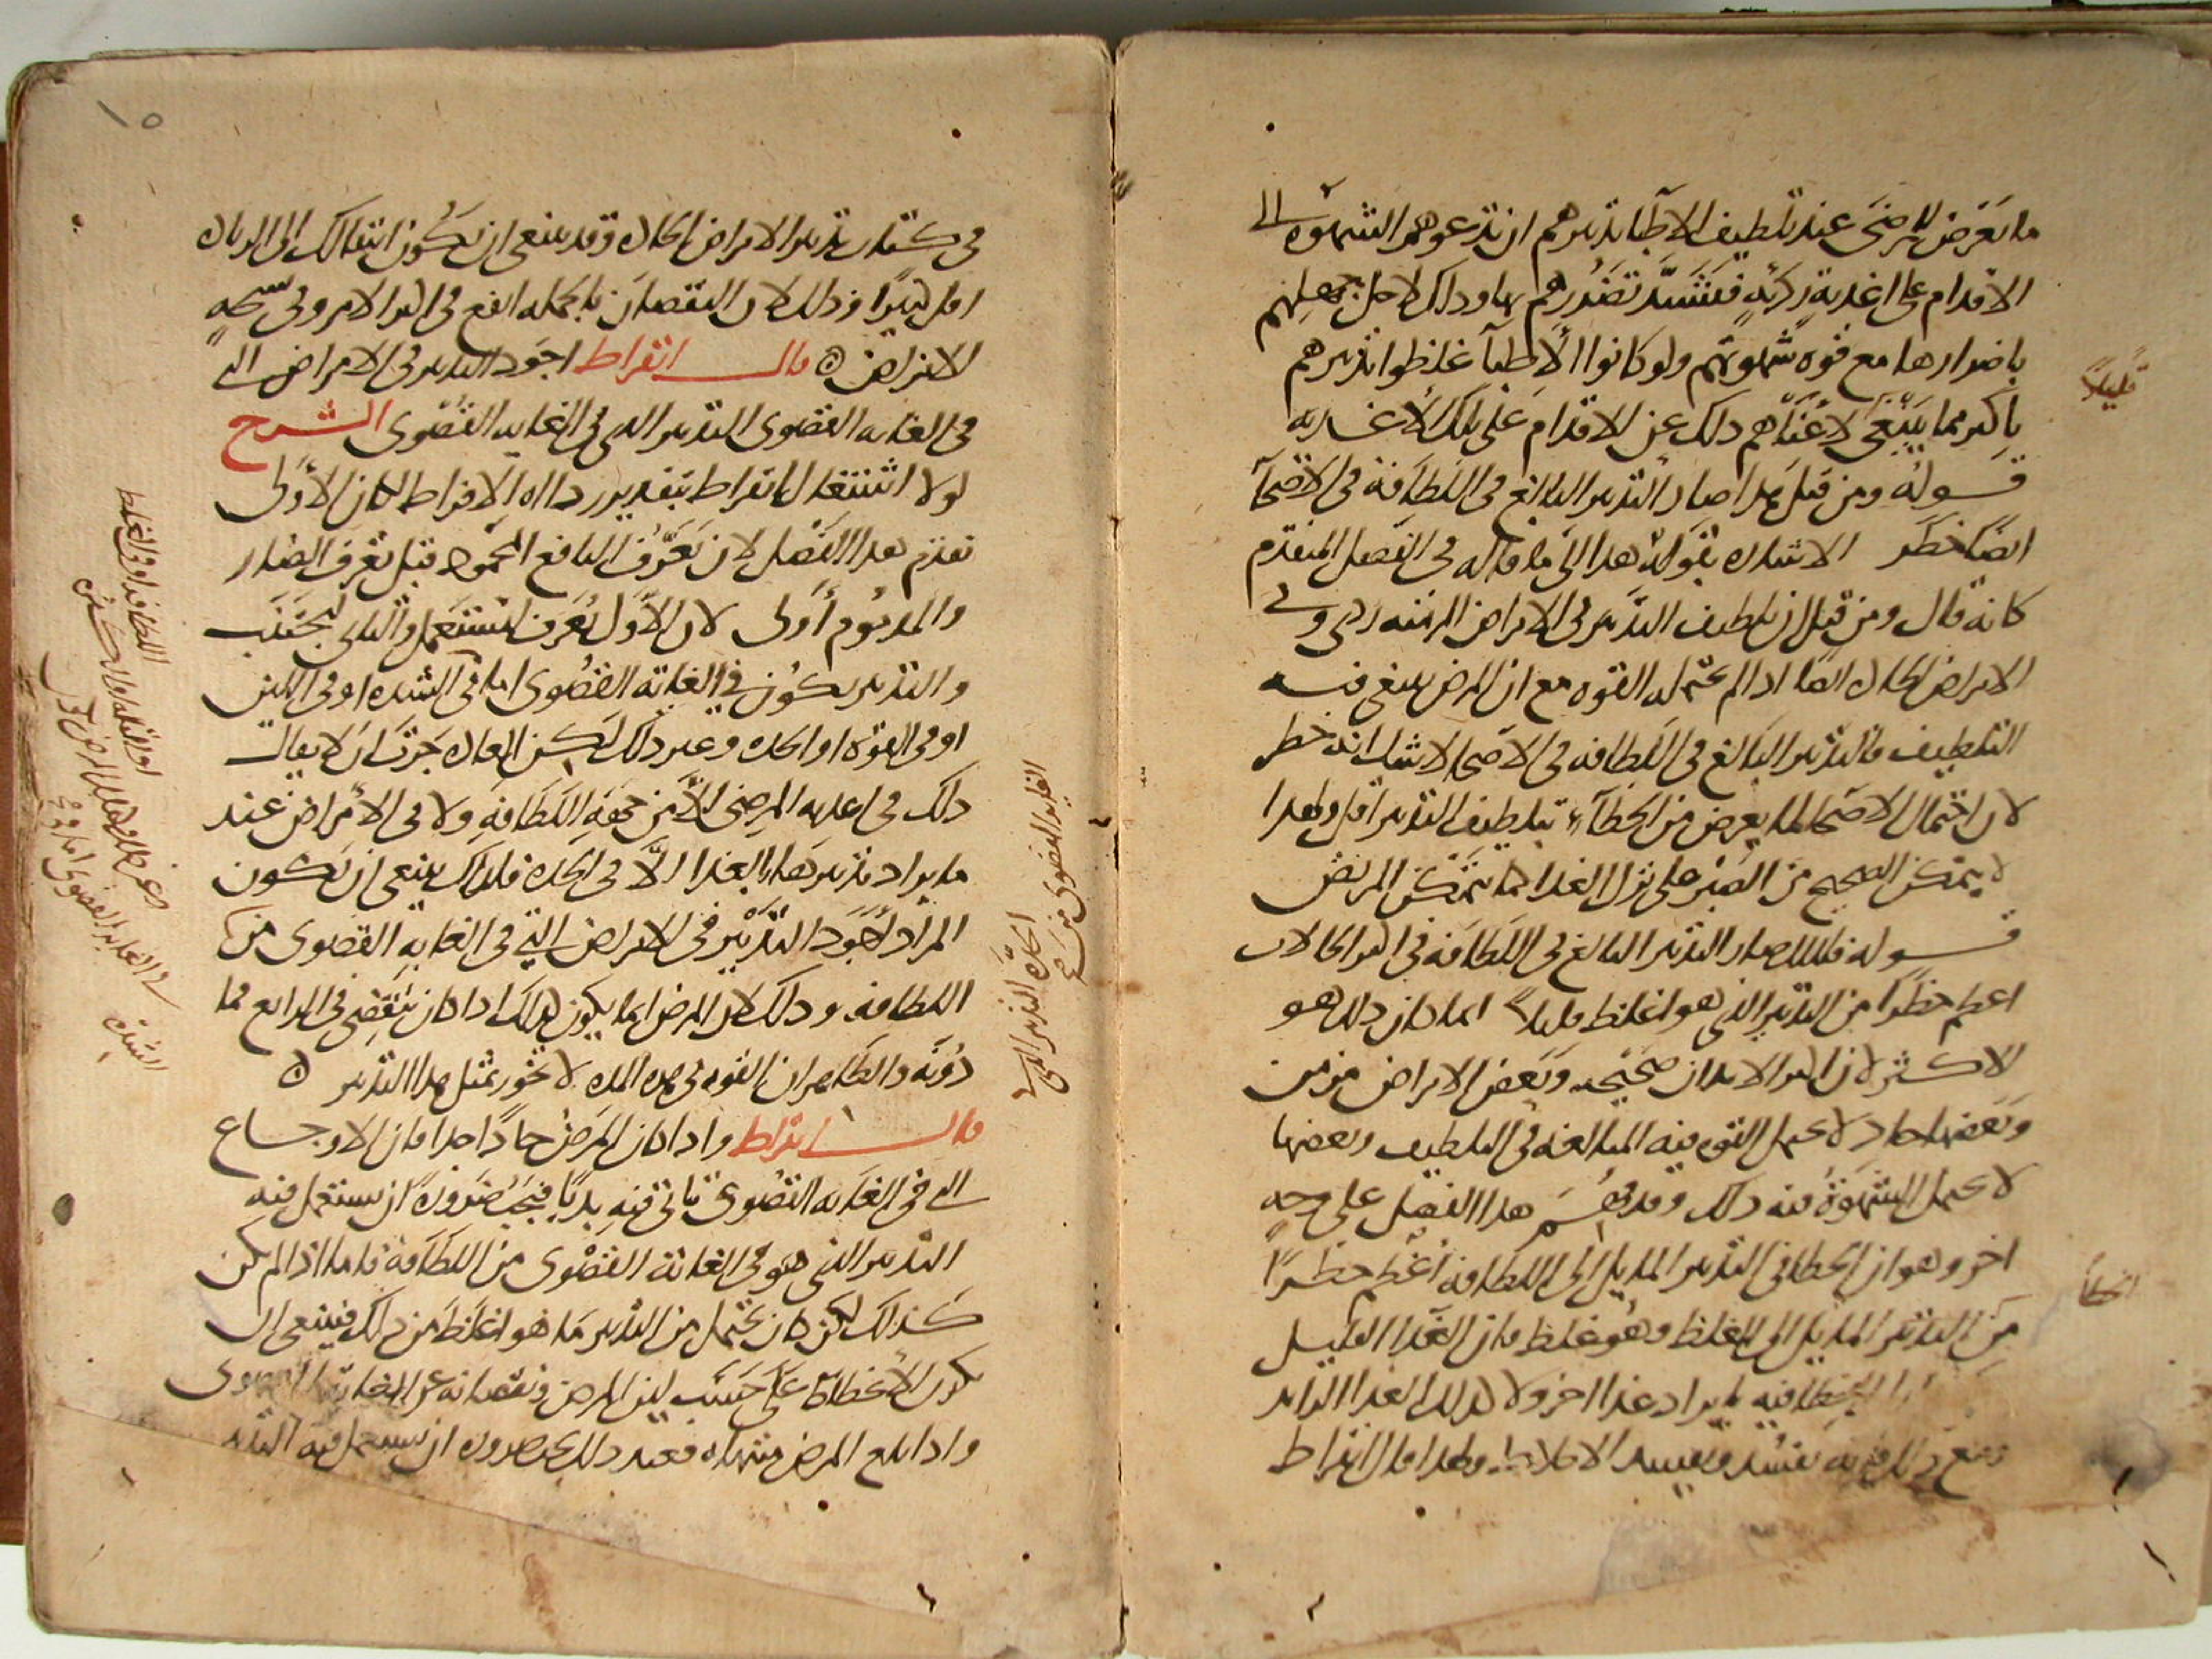 ما يعرض للمرضى عند تلطيف الاطبا تدبيرهم ان تدعوهم الشهوه الى
الاقدام على اغذية ردية فيشتد تضررهم بها وذلك لاجل جهلهم
باضرارها مع قوة شهوتهم ولو كانوا الاطبا غلظوا تدبيرهم
باكثر مما ينبغى لاغناهم ذلك عن الاقدام على تلك الاغذيه
قليلا
قوله ومن قبل هذا صار التدبير البالغ فى اللطافة فى الاصحا
ايضا خطر الاشاره بقوله هذا الى ما قاله فى الفصل المتقدم
كانه قال ومن قبل ان تلطيف التدبير فى الامراض المزمنه ردى وفى
الامراض الحاده ايضا اذا لم تحتمله القوه مع ان المرض ينبغى فيه
التلطيف فالتدبير البالغ فى اللطافه فى الاصحا لا شك انه خطر
لان احتمال الاصحا لما يعرض من الخطاء بتلطيف التدبير اقل ولهذا
لا يتمكن الصحيح من الصبر على ترك الغذا كما يتمكن المريض
قوله فلذلك صار التدبير البالغ فى اللطافة فى اكثر الحالات
اعظم خطرا من التدبير الذى هو اغلظ قليلا انما كان ذلك هو
الاكثر لان اكثر الابدان صحيحه وبعض الامراض مزمن
وبعضها حاد لا تحمل القوه فيه المبالغه فى التلطيف وبعضها
لا تحمل الشهوة فيه ذلك وقد فهم هذا الفصل على وجه
اخر وهو ان الخطا فى التدبير المايل الى اللطافه اعظم خطرا
الخطأ
من التدبير المايل الى الغلظ وهو غلط فان الغذا القليل
الخطا فيه بايراد غذا اخر ولا كذلك الغذا الزايد
يفسد ويفسد الاخلاط ولهذا قال ابقراط
١٥
فى كتاب تدبير الامراض الحاده وقد ينبغى ان يكون انتقالك الى الزياده
اقل كثيرا وذلك لان النقصان بالجمله انفع فى اكثر الامر وفى
الامراض قال ابقراط اجود التدبير فى الامراض التى
فى الغايه القصوى التدبير الذى فى الغايه القصوى الشرح
لولا اشتغال ابقراط بتقدير رداءه الافراط لكان الاولى
تقديم هذا الفصل لان تعرف النافع المحمود قبل تعرف الضار
والمذموم اولى لان الاول يعرف ليستعمل والثانى ليجتنب
والتدبير يكون فى الغاية القصوى اما فى الشده او فى اللين
او فى القوة او الحدة وغير ذلك لكن العاده جرت ان لا يقال
ذلك فى اغذيه المرضى الا من جهة اللطافه ولا فى الامراض عند
ما يراد تدبيرها بالغذا الا فى الحده فلذلك ينبغى ان يكون
المراد اجود التدبير فى الامراض التى فى الغايه القصوى من
الحدة التدبير الذى فى
الغايه القصوى من
اللطافه وذلك لان المرض انما يكون كذلك اذا كان ينقضى فى الرابع فما
دونه والظاهر ان القوه فى هذه المده لا تخور بمثل هذا التدبير
قال ابقراط واذا كان المرض حادا جدا فان الاوجاع
التى فى الغايه القصوى تاتى فيه بديا فيجب ضرورة ان يستعمل فيه
التدبير الذى هو فى الغاية القصوى من اللطافة فاما اذا لم يكن
كذلك لكن كان يحتمل من التدبير ما هو اغلظ من ذلك فينبغى ان
يكون الانحطاط على حسب لين المرض ونقصانه عن الغاية القصوى
واذا بلغ المرض منتهاه فعند ذلك يجب ضرورة ان يستعمل فيه التدبير